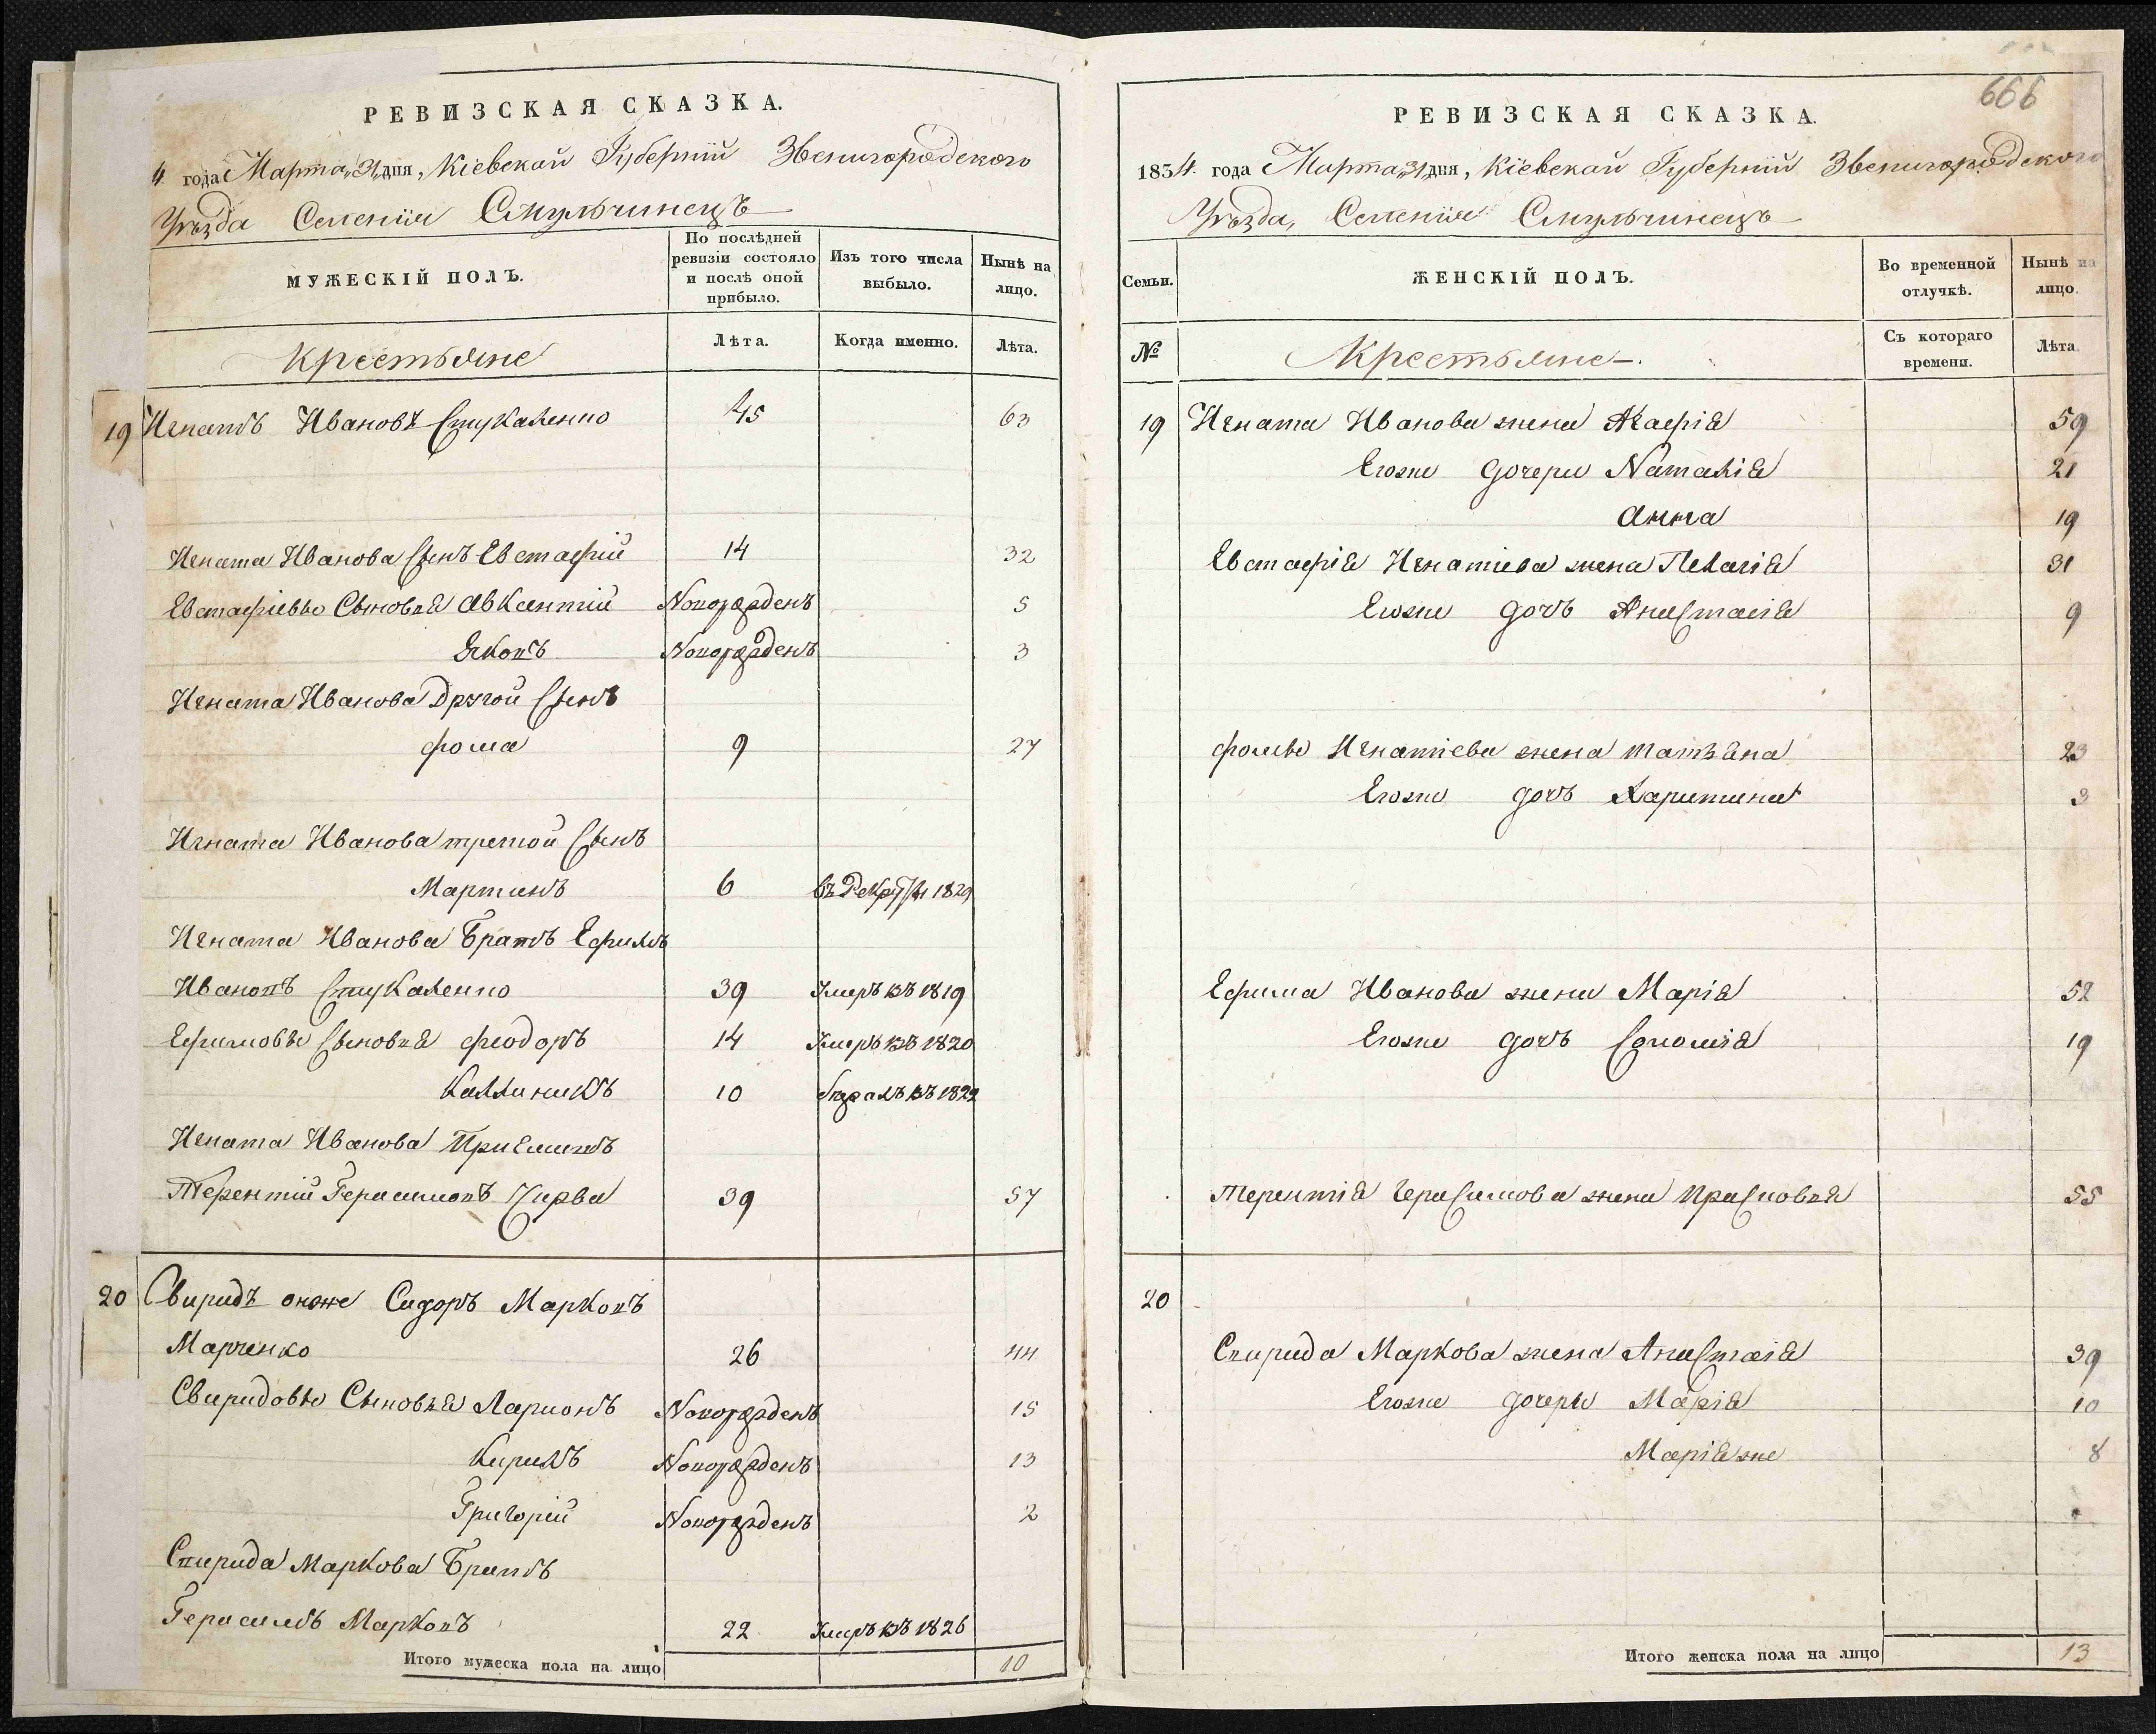 РЕВИЗСКАЯ СКАЗКА.
4 года Марта „31„ дня, Кіевской Губерніи Звенигородского
Уѣзда Селенія Смульчинецъ
МУЖЕСКІЙ ПОЛЪ.
По послѣдней ревизіи состояло и послѣ оной прибыло.
Изъ того числа выбыло.
Нынѣ на лицо.
Крестьяне
Лѣта.
Когда именно.
Лѣта.
19 Игнатъ Ивановъ Стукаленко 45 63
Игната Иванова Сынъ Евстафій 14 32
Евстафіевы Сыновья Авксентій Новорожденъ 5
Яковъ Новорожденъ 3
Игната Иванова Другой Сынъ
Фома 9 27
Игната Иванова третой Сынъ
Мартинъ 6 въ 1829
Игната Иванова Братъ Ефимъ
Ивановъ Стукаленко 39 Умеръ въ 1819
Ефимовы Сыновья Феодоръ 14 Умеръ въ 1820
Каллиникъ 10 въ 1822
Игната Иванова Приемышъ
Терентій Герасимовъ Чирва 39 57
20 Свиридъ онже Сидоръ Марковъ
Марченко 26 44
Свиридовы Сыновья Ларионъ Новорожденъ 15
Кирилъ Новорожденъ 13
Григорій Новорожденъ 2
Свирида Маркова Братъ
Герасимъ Марковъ 22 Умеръ въ 1826
Итого мужеска пола на лицо 10
666
РЕВИЗСКАЯ СКАЗКА.
1834. года Марта „31„ дня, Кіевской Губерніи Звенигородского
Уѣзда, Селенія Смульчинецъ
Семьи.
ЖЕНСКІЙ ПОЛЪ.
Во временной отлучкѣ.
Нынѣ на лицо.
№
Крестьяне
Съ котораго времени.
Лѣта.
19 Игната Иванова жена Агафія 59
Егоже дочери Наталія 21
Анна 19
Евстафія Игнатіева жена Пелагія 31
Егоже дочь Анастасія 9
Фомы Игнатіева жена татьяна 23
Егоже дочь Харитина 3
Ефима Иванова жена Марія 52
Егоже дочь Соломія 19
Терентія Герасимова жена Прасковья 55
20
Свирида Маркова жена Анастасія 39
Егоже дочери Марія 10
Маріяже 8
Итого женска пола на лицо 13